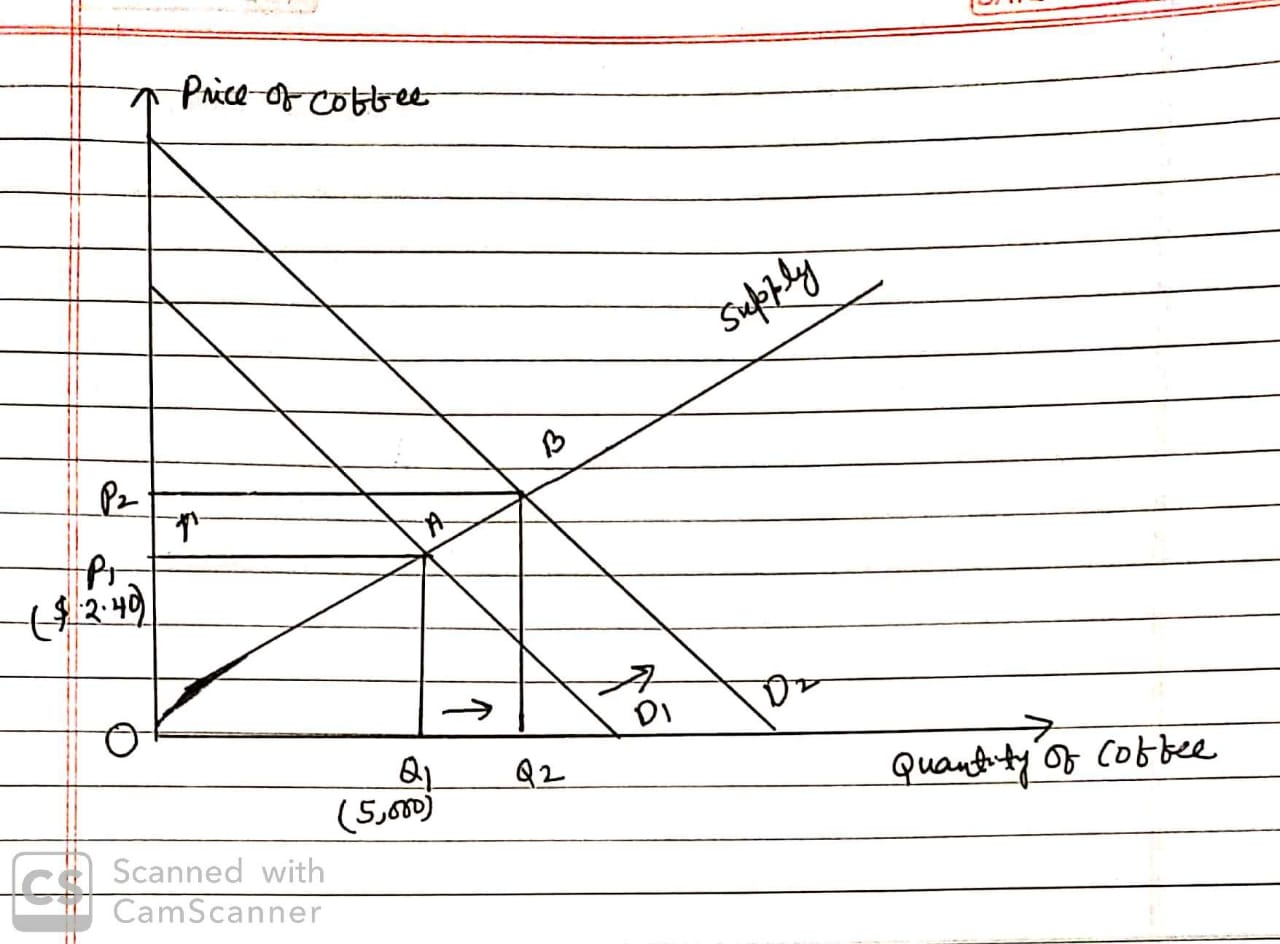 Price of coffee
Supply
B
P2
A
P1
($ 2.40)
D2
D1
O
Q1
Q2
Quantity of coffee
(5,000)
CS
Scanned with
CamScanner